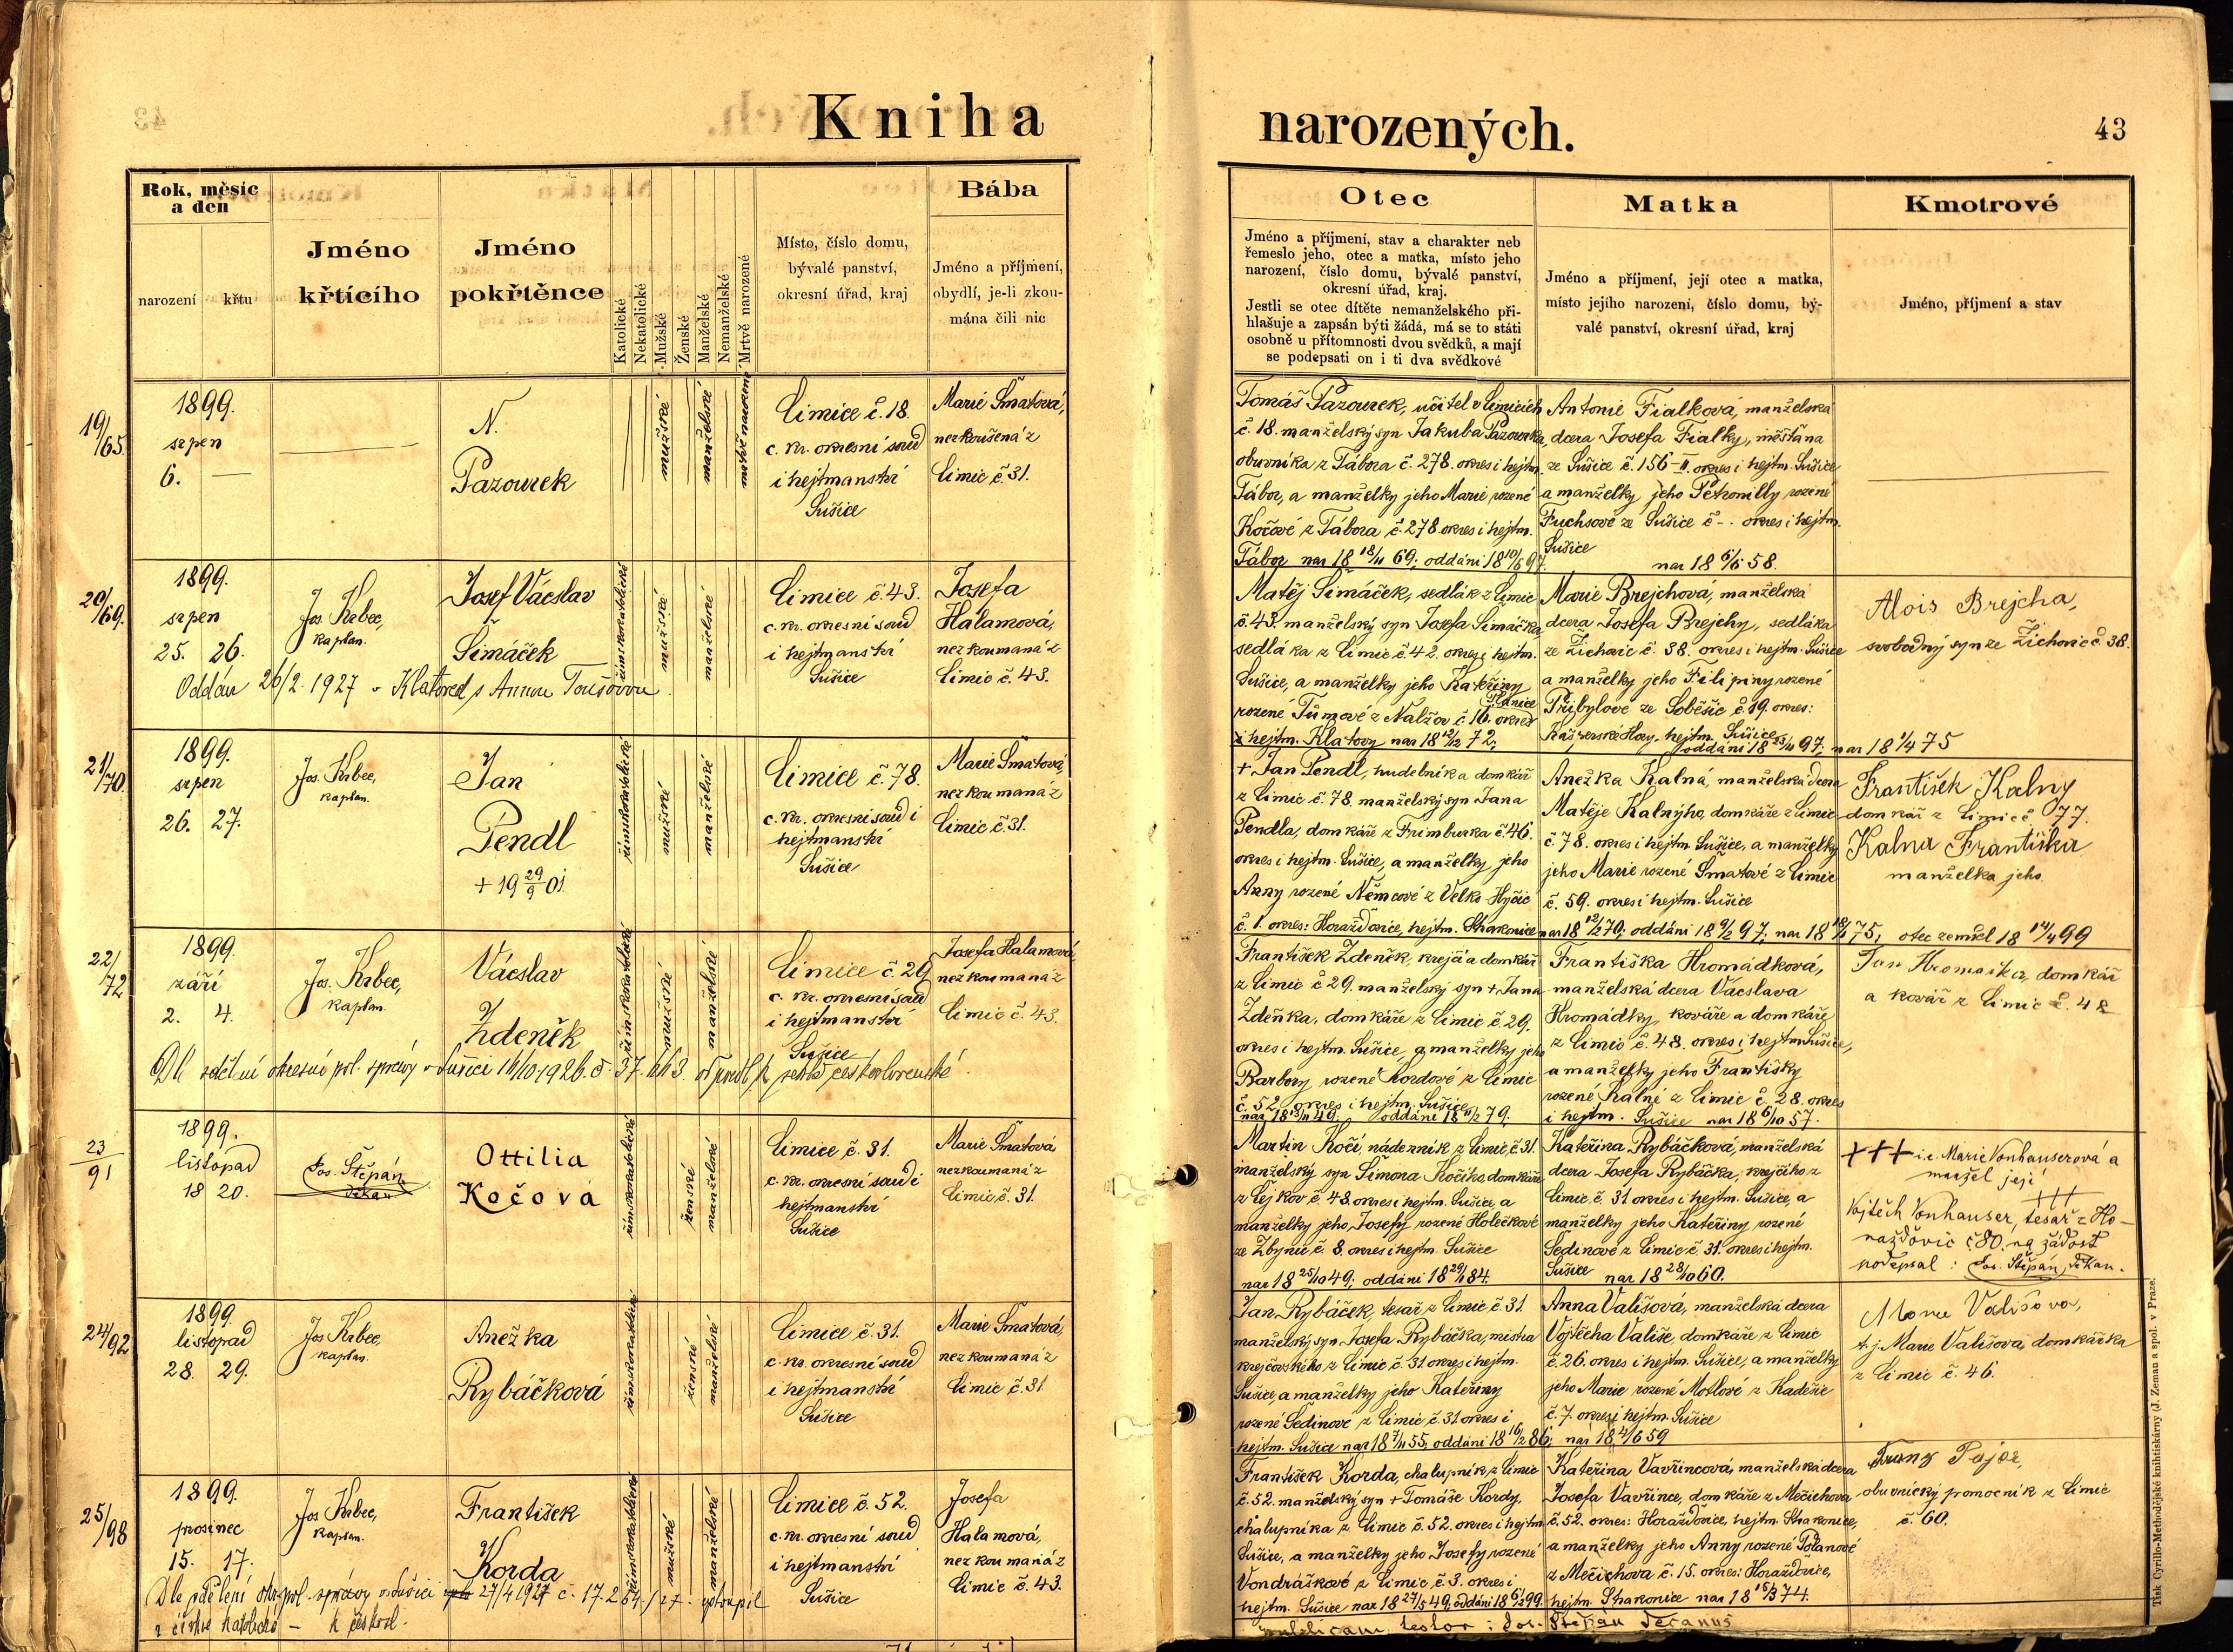 Kniha narozených.
43
Rok, měsíc a den
narození
křtu
Jméno křtícího
Jméno pokřtěnce
Katolické
Nekatolické
Mužské
Ženské
Manželské
Nemanželské
Mrtvě narozené
Místo, číslo domu,
bývalé panství,
okresní úřad, kraj
Bába
Jméno a příjmení,
obydlí, je-li zkou-
mána čili nic
Otec
Jméno a příjmení, stav a charakter neb
řemeslo jeho, otec a matka, místo jeho
narození, číslo domu, bývalé panství,
okresní úřad, kraj.
Jestli se otec dítěte nemanželského při-
hlašuje a zapsán býti žádá, má se to státi
osobně u přítomnosti dvou svědků, a mají
se podepsati on i ti dva svědkové
Matka
Jméno a příjmení, její otec a matka,
místo jejího narození, číslo domu, bý-
valé panství, okresní úřad, kraj
Kmotrové
Jméno, příjmení a stav
19/65.
1899.
srpen
6.
N.
Pazourek
mužské
manželské
mrtvě narozené
Limice č. 18.
c. kr. okresní soud
i hejtmanství
Sušice
Marie Šmatová,
nezkoušená z
Limic č. 31.
Tomáš Pazourek, učitel v Limicích
č. 18. manželský syn Jakuba Pazourka,
obuvníka z Tábora č. 278. okres i hejtm.
Tábor, a manželky jeho Marie rozené
Kočové z Tábora č. 278 okres i hejtm.
Tábor nar 18 18/11 69; oddáni 18 10/5 97.
Antonie Fialková, manželská
dcera Josefa Fialky, měšťana
ze Sušice č. 156-II. okres i hejtm. Sušice
a manželky jeho Petronilly rozené
Fuchsové ze Sušice č -. okres i hejtm.
Sušice
nar 18 6/6 58.
20/69.
1899.
srpen
25. 26.
Jos. Krbec,
kaplan.
Josef Václav
Šimáček
římskokatolické
mužské
manželské
Limice č. 43.
c. kr. okresní soud
i hejtmanství
Sušice
Josefa
Hálamová,
nezkoumaná z
Limic č. 43.
Oddán 26/2. 1927 v Klatovech s Annou Toušovou
Matěj Šimáček, sedlák z Limic
č. 43. manželský syn Josefa Šimáčka,
sedláka z Limic č. 42. okres i hejtm.
Sušice, a manželky jeho Kateřiny
rozené Tůmové z Nalžov č. 16. okres Plánice
i hejtm. Klatovy nar 18 12/12 72;
Marie Brejchová, manželská
dcera Josefa Brejchy, sedláka
ze Žichovic č. 38. okres i hejtm. Sušice
a manželky jeho Filipiny rozené
Přibylové ze Soběšic č. 19. okres:
Kašperské Hory, hejtm. Sušice
oddáni 18 23/11 97; nar 18 1/4 75
Alois Brejcha,
svobodný syn ze Žichovic č. 38.
21/70.
1899.
srpen
26. 27.
Jos. Krbec,
kaplan.
Jan
Pendl
+ 19 29/9 01
římskokatolické
mužské
manželské
Limice č. 78.
c. kr. okresní soud i
hejtmanství
Sušice
Marie Šmatová,
nezkoumaná z
Limic č. 31.
+ Jan Pendl, hudebník a domkář
z Limic č. 78. manželský syn Jana
Pendla, domkáře z Frimburka č. 46.
okres i hejtm. Sušice, a manželky jeho
Anny rozené Němcové z Velko Hyčic
č. 1. okres: Horažďovice, hejtm. Strakonice
Anežka Kalná, manželská dcera
Matěje Kalnýho, domkáře z Limic
č. 78. okres i hejtm. Sušice, a manželky
jeho Marie rozené Šmatové z Limic
č. 59. okres i hejtm. Sušice
nar 18 12/12 70; oddáni 18 9/2 97; nar 75, otec zemřel 18 14/4 99
František Kalny
domkář z Limic č. 77.
Kalna Františka
manželka jeho.
22/72
1899.
září
2. 4.
Jos. Krbec,
kaplan.
Václav
Zdeněk
římskokatolické
mužské
manželské
Limice č. 29
c. kr. okresní soud
i hejtmanství
Sušice
Josefa Halamová
nezkoumaná z
Limic č. 43.
Dle sdělní okresní pol. správy v Sušici 14/10 1926 č. 37.663. k československé.
František Zdeněk, krejčí a domkář
z Limic č 29. manželský syn + Jana
Zdeňka, domkáře z Limic č. 29.
okres i hejtm. Sušice, a manželky jeho
Barbory rozené Kordové z Limic
č. 52. okres i hejtm. Sušice
nar 18 13/11 49; oddáni 18 11/2 79.
Františka Hromádková,
manželská dcera Václava
Hromádky, kováře a domkáře
z Limic č. 48. okres i hejtm Sušice,
a manželky jeho Františky
rozené Kalné z Limic č. 28. okres
i hejtm. Sušice nar 18 6/10 57.
Jan Hromatka, domkář
a kovář z Limic č. 48
23/91
1899.
listopad
18 20.
Jos. Štěpán,
děkan
Ottilia
Kočová
římskokatolické
ženské
manželské
Limice č. 31.
c. kr. okresní soud i
hejtmanství
Sušice
Marie Šmatová
nezkoumaná z
Limic č. 31.
Martin Kočí, nádenník z Limic, č. 31.
manželský syn Šimona Kočího, domkáře
z Lejkov č. 48. okres i hejtm. Sušice, a
manželky jeho Josefy rozené Holečkové
ze Zbynic č. 8. okres i hejtm. Sušice
nar 18 25/10 49; oddáni 18 29/1 84.
Kateřina Rybáčková, manželská
dcera Josefa Rybáčka, krejčího z
Limic č. 31 okres i hejtm. Sušice, a
manželky jeho Kateřiny rozené
Šedinové z Limic č. 31. okres i hejtm.
Sušice nar 18 28/10 60.
+++ i.e. Marie Vonhauserová a
manžel její
+++
Vojtěch Vonhauser, tesař z Ho-
raždovic č. 80. na žádost
podepsal: Jos. Štěpán, děkan.
24/92
1899.
listopad
28. 29.
Jos Krbec,
kaplan.
Anežka
Rybáčková
římskokatolické
ženské
manželské
Limice č. 31.
c. kr. okresní soud
i hejtmanství
Sušice
Marie Šmatová,
nezkoumaná z
Limic č. 31
Jan Rybáček, tesař z Limic č. 31.
manželský syn Josefa Rybáčka, mistra
krejčovského z Limic č. 31. okres i hejtm.
Sušice, a manželky jeho Kateřiny
rozené Šedinové z Limic č. 31 okres i
hejtm. Sušice nar 18 7/11 55; oddáni 18 16/2 86;
Anna Vališová, manželská dcera
Vojtěcha Vališe, domkáře z Limic
č. 26. okres i hejtm. Sušice, a manželky
jeho Marie rozené Motlové z Kadešic
č. 7. okres i hejtm. Sušice
nar 18 /6 59
Marie Vališova,
t.j. Marie Vališová, domkářka
z Limic č. 46.
25/98
1899.
prosinec
15. 17.
Jos Krbec,
kaplan.
František
Korda
římskokatolické
mužské
manželské
Limice č. 52.
c. kr. okresní soud
i hejtmanství
Sušice
Josefa
Halamová,
nezkoumaná z
Limic č. 43.
Dle sdělení okr. pol. správy v Sušici 27/4 1927 č. 17.264/27 vystoupil
z církve katolické - k českosl.
František Korda, chalupník z Limic
č. 52. manželský syn + Tomáše Kordy,
chalupníka z Limic č. 52. okres i hejtm
Sušice, a manželky jeho Josefy rozené
Vondráškové z Limic č. 3. okres i
hejtm. Sušice nar 18 27/5 49; oddáni 18 6/2 99.
Kateřina Vavřincová, manželská dcera
Josefa Vavřince, domkáře z Mečichova
č. 52. okres: Horažďovice, hejtm. Strakonice,
a manželky jeho Anny rozené Polanové
z Mečichova č. 15. okres: Horažďovice,
hejtm. Strakonice nar 18 15/3 74.
Franz Pajor,
obuvnický pomocník z Limic
č. 60.
publicam testor: Jos. Štěpán Decanus
Tisk Cyrillo-Methodějské knihtiskárny (J. Zeman a spol. v Praze.